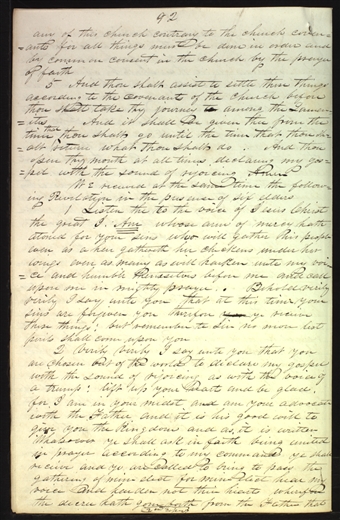 92
any of this church contrary to the church coven-
=ants for all things must be done in order and
=by common consent in the church by the prayer
of faith
5 And thou shalt assist to settle these things
according to the covenant of the church before
thou shalt take thy journey among the Laman-
=ites. And it shall be given thee from the
time thou shalt go until the time that thou sh-
alt return what thou shalt do. And thou
open thy mouth at all times declaring my gos-
=pel with the sound of rejoicing Amen
We received at the same time the follow-
ing Revelation in the presence of six elders
1 Listen to the voice of Jesus Christ
the great I Am whose arm of mercy hath
atoned for your sins who will gather his people
even as a hen gathereth her chickens under her
wings even as many as will harken unto my voi-
ce and humble themselves before me and call
upon me in mighty prayer. Behold verily
verily I say unto you that at this time your
sins are forgiven you therefore ye receive
these things: but remember to sin no more lest
perils shall come upon you
2 Verily Verily I say unto you that you
are chosen out of the world to declare my gospel
with the sound of rejoicing as with the voice of
a trump: lift up your heart and be glad
for I am in your midst and am your advocate
with the Father and it is his good will to
give you the Kingdom and as it is written
Whatsoever ye shall ask in faith being united
in prayer according to my command ye shall
receive and ye are called to bring to pass the
gathering of mine elect for mine elect hear my
voice and harden not their hearts wherefore
the decree hath gone forth from the Father that